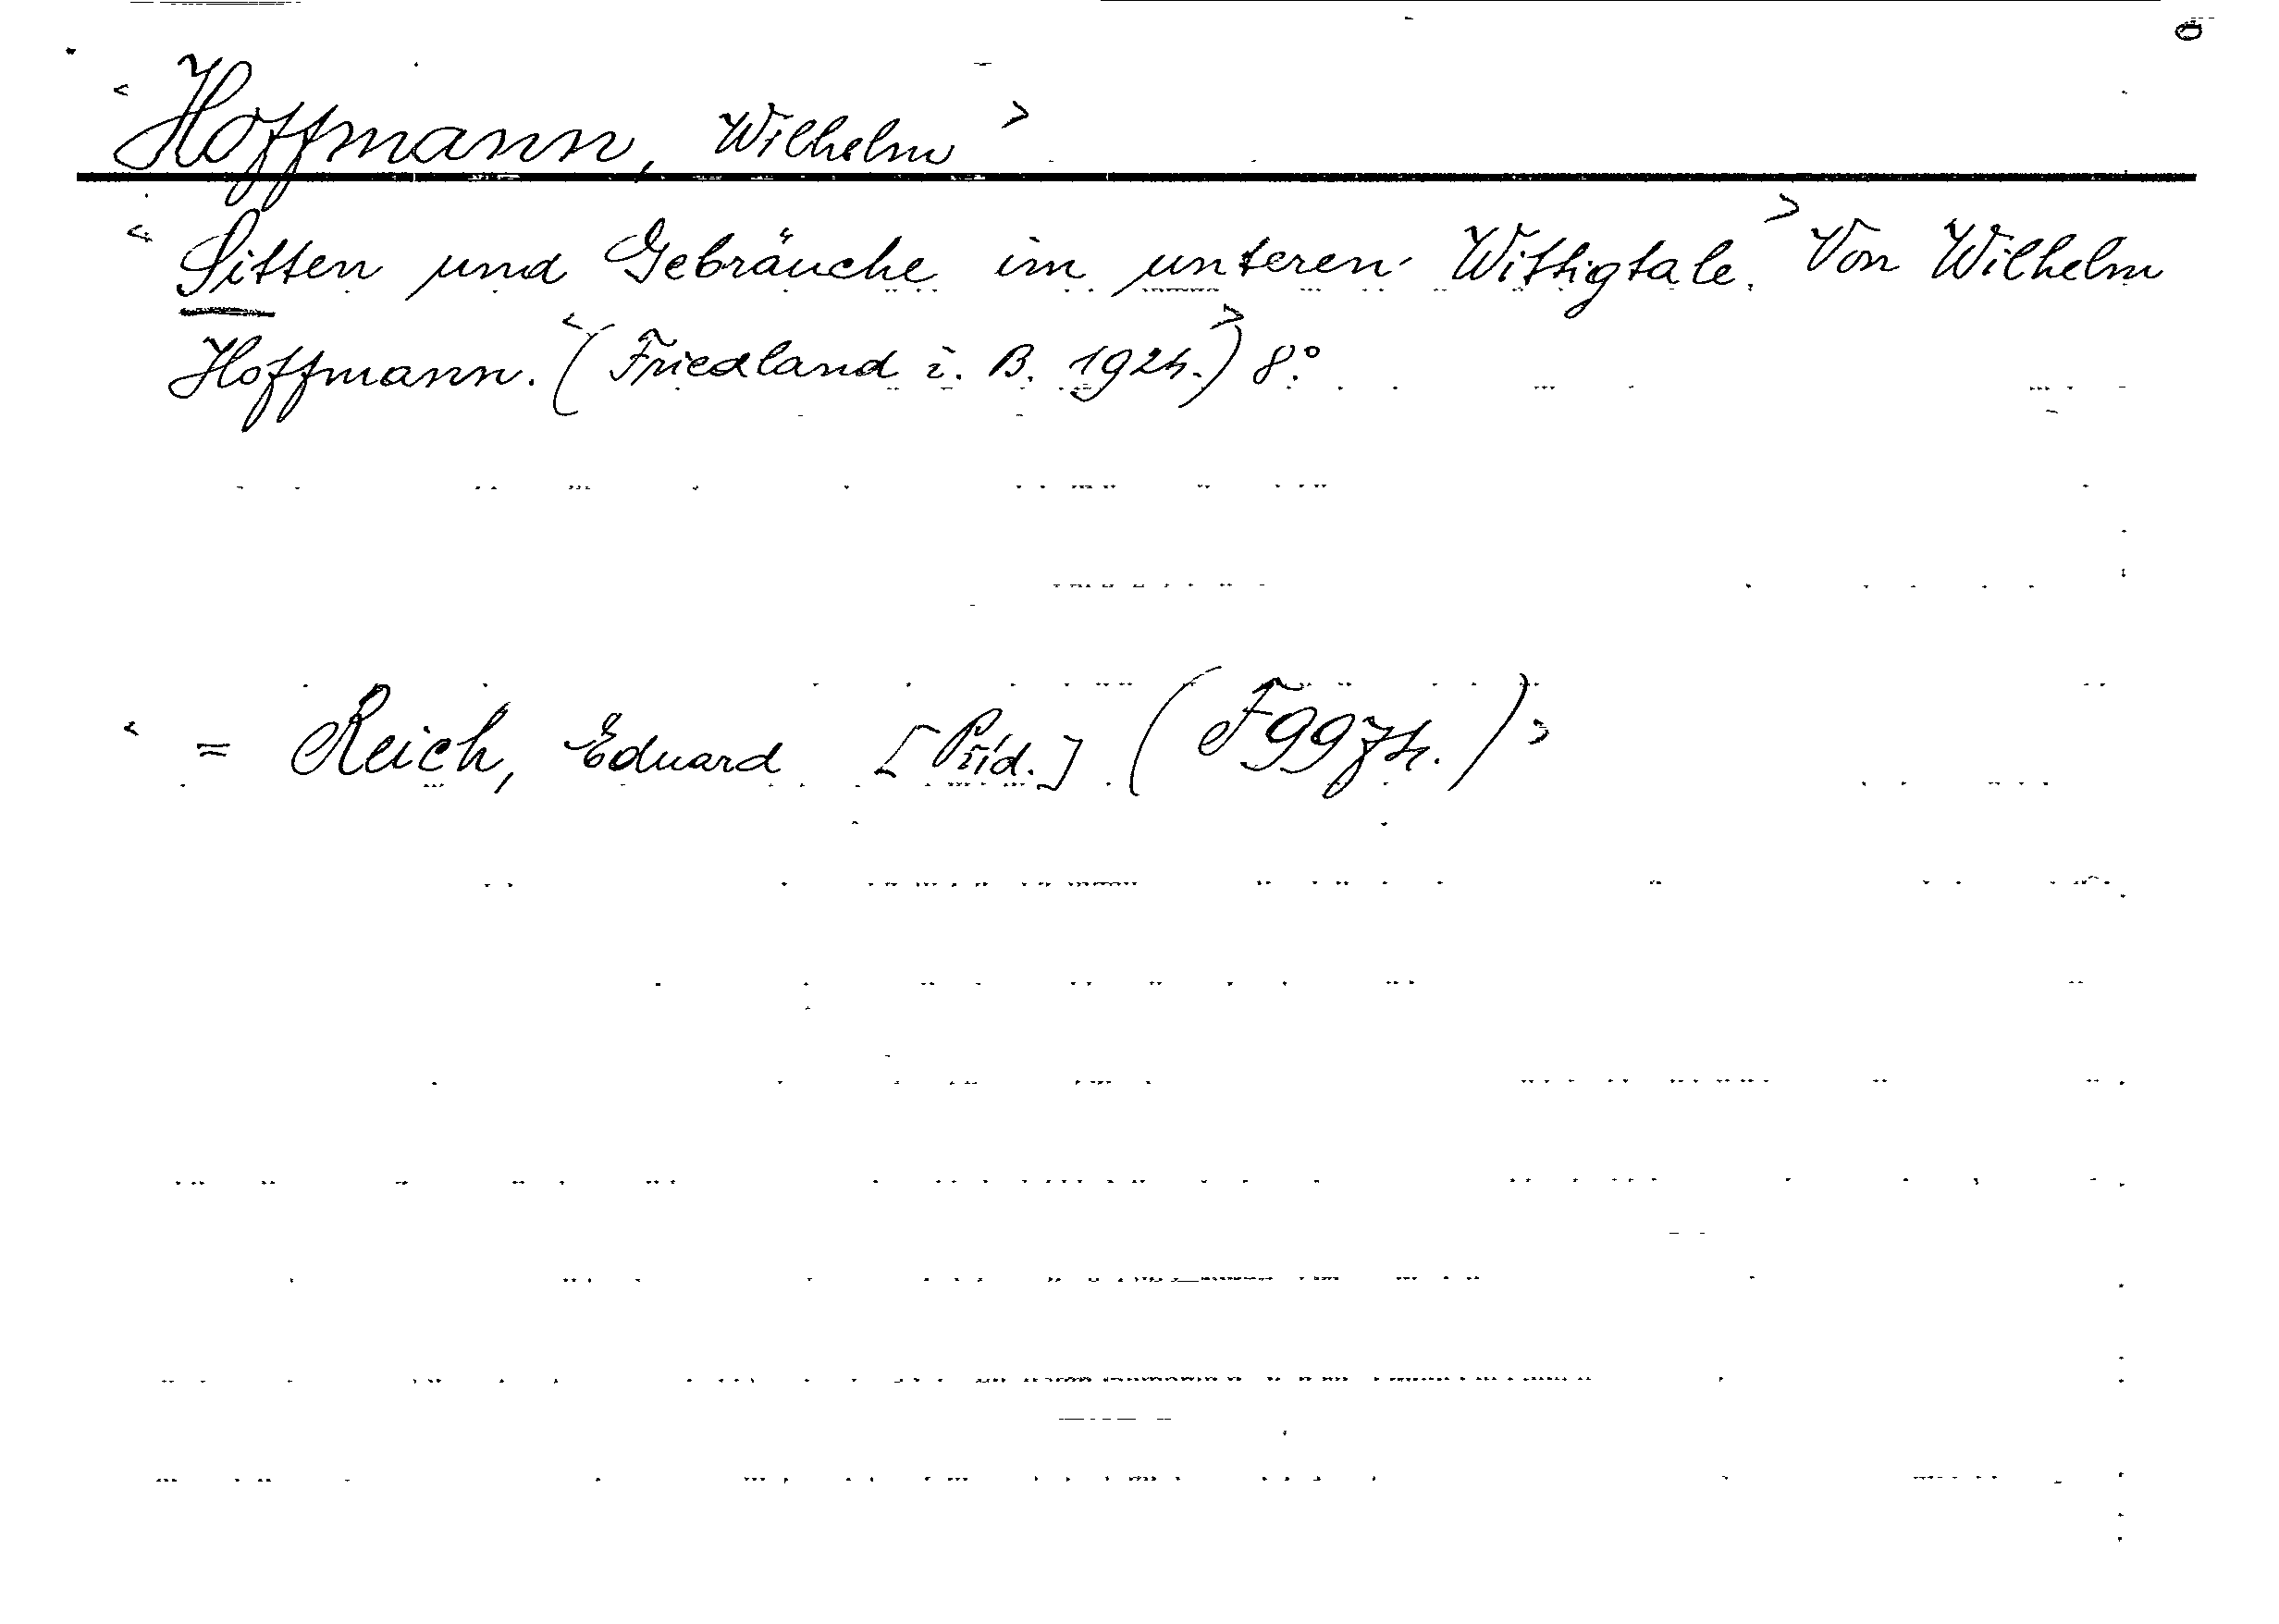 < Hoffmann, Wilhelm >
< Sitten und Gebräuche im unteren Wittigtale. > Von Wilhelm
Hoffmann. < (Friedland i. B. 1924.) > 8°.
< = Reich, Eduard [Příd.] (F 9974.) >